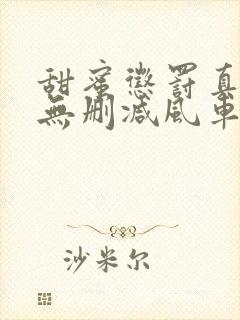 甜蜜懲罰真
無删減風車
沙米尔